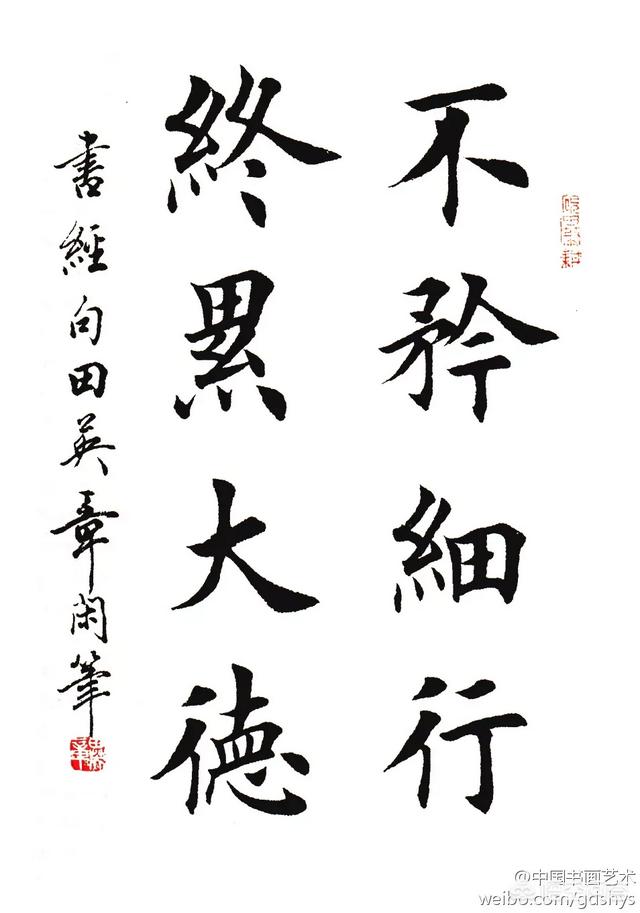 不矜细行
終累大德
書經句田英章闲筆
@中国书画艺术
weibo.com/gdshys